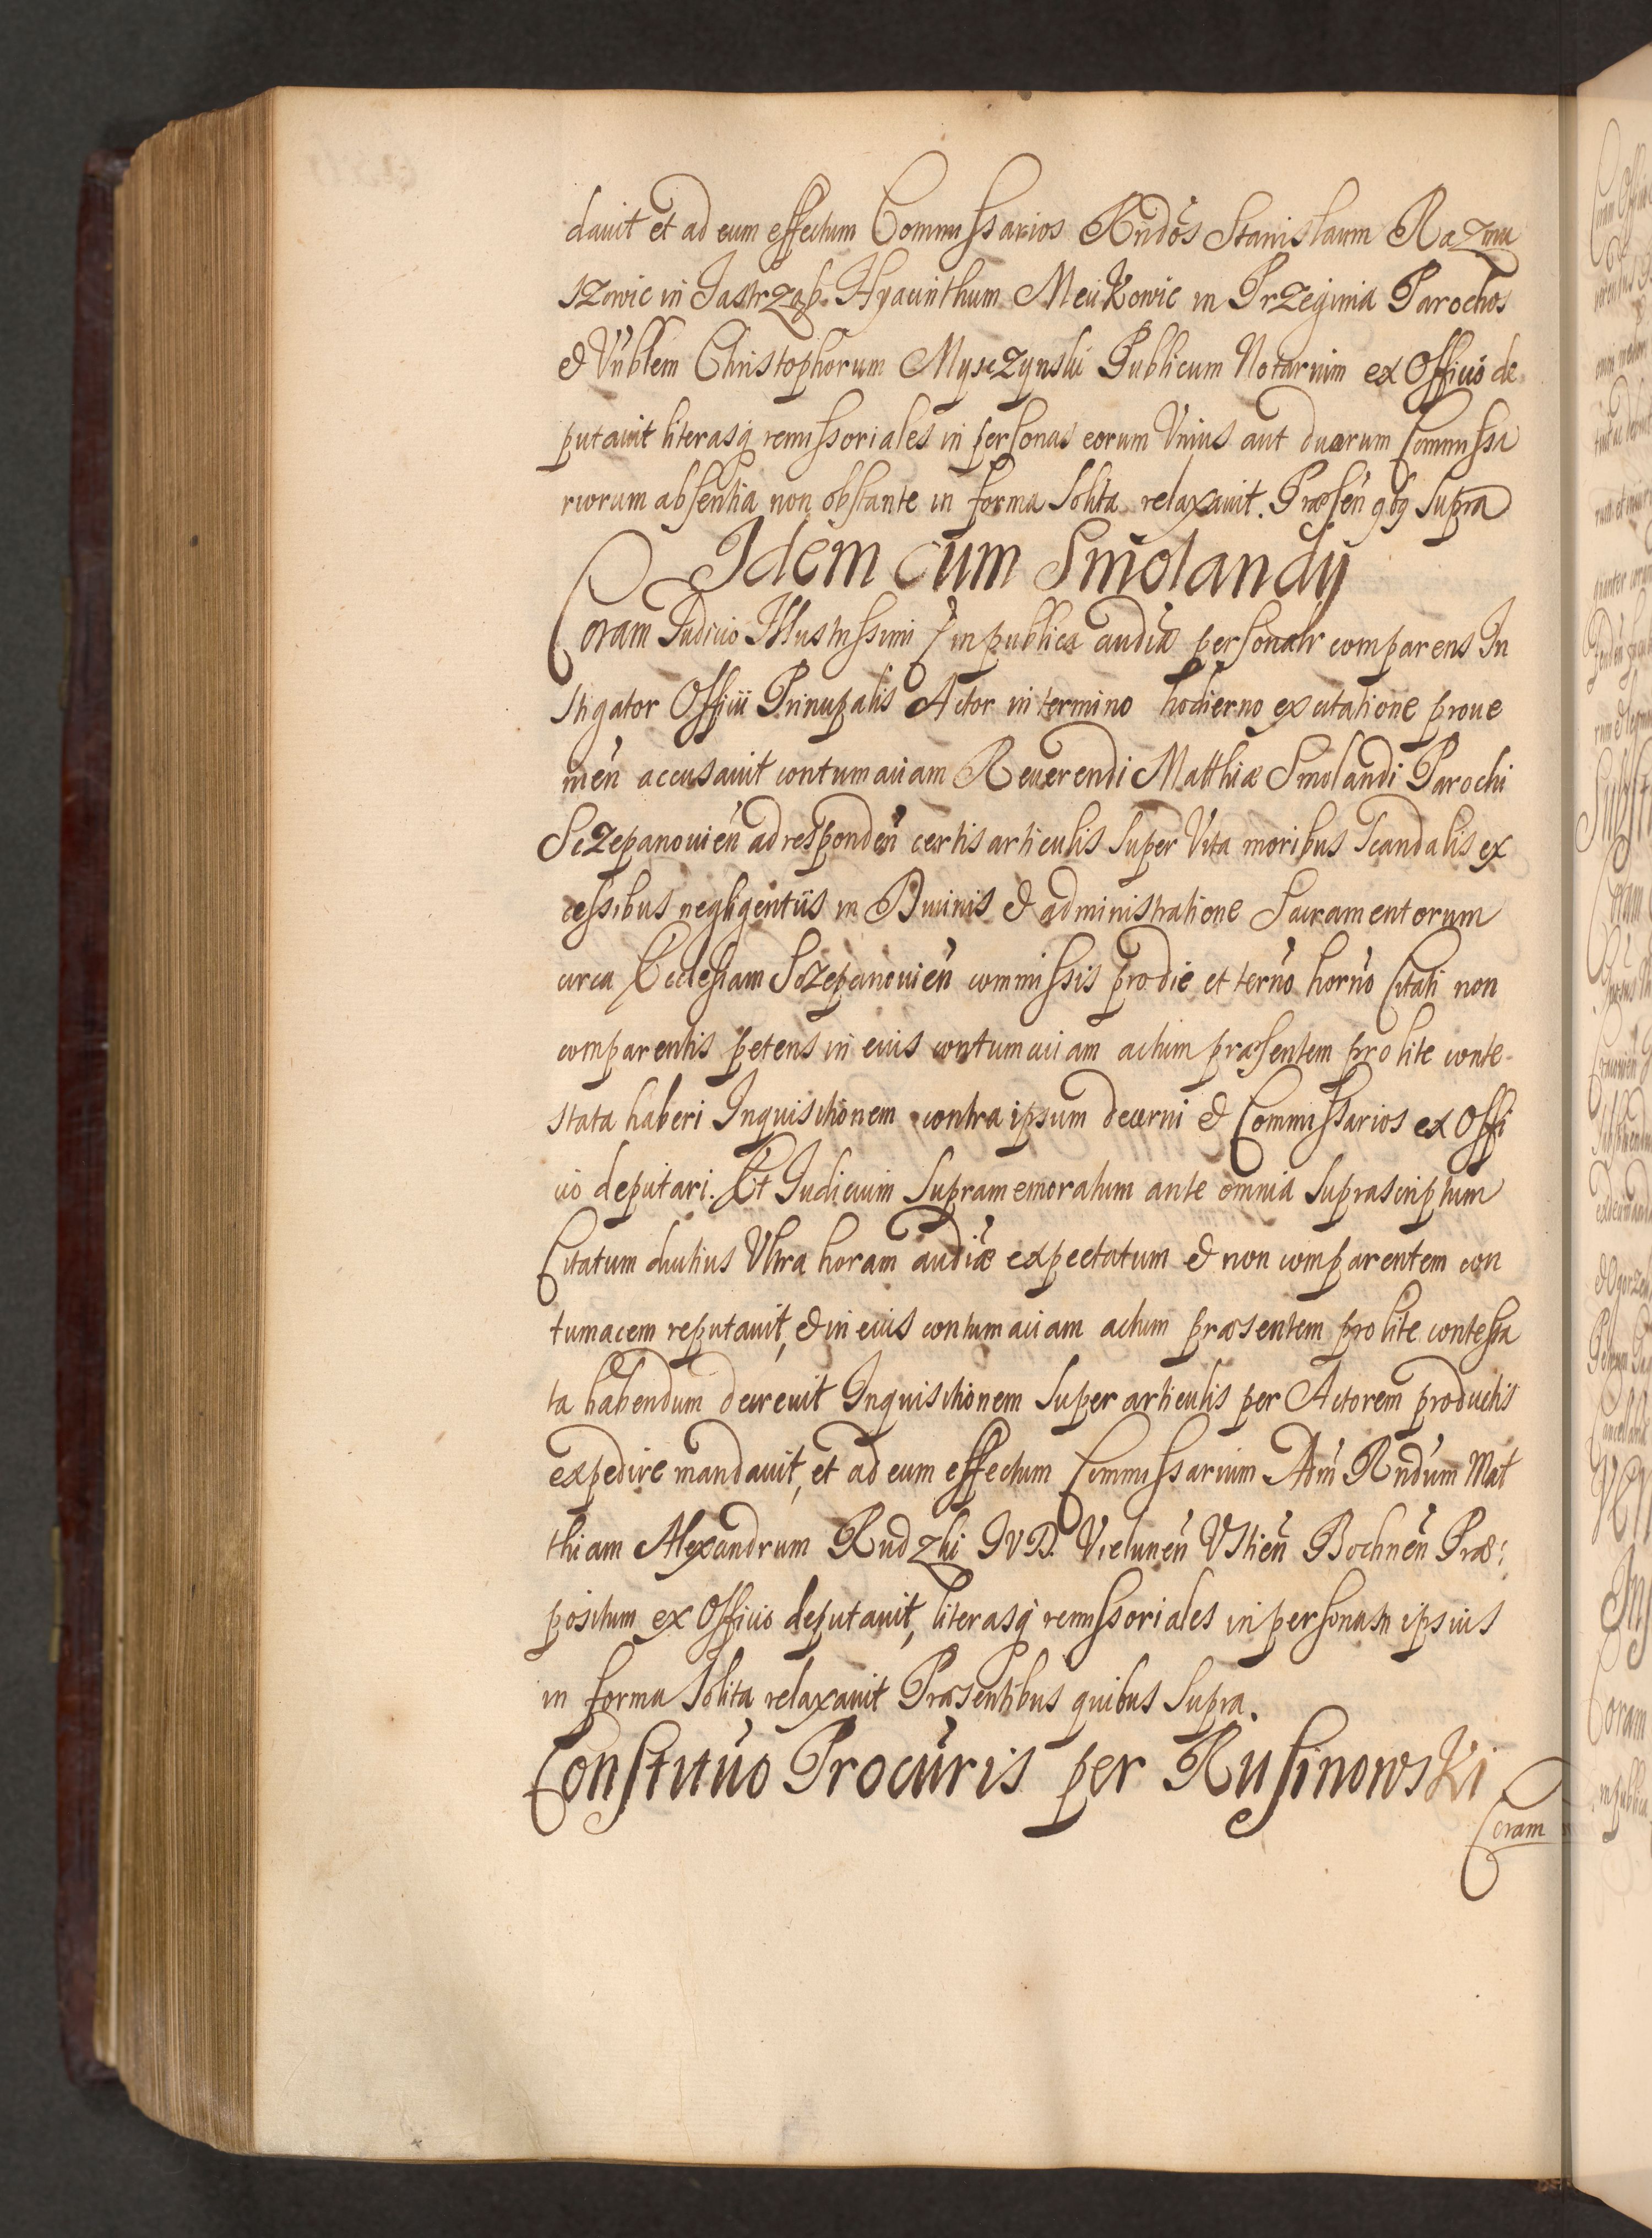 dauit et ad eum effectum Commissarios Rndos Stanislaum Razmu
szowic in Jastrząb. Hyacinthum Meikowic in Przeginia Parochos
& Vnblem Christophorum Mysczynski Publicum Notarium ex Officio de
putauit literasq remissoriales in personas eorum Vnius aut duorum Commissa
riorum absentia non obstante in forma solita relaxauit. Præsen qbq supra
Idem cum Smolandy
Coram Judicio Illustrissimi in publica audia personalr comparens In
stigator Officii Principalis Actor in termino hodierno ex citatione proue
nien accusauit contumaciam Reuerendi Matthiæ Smolandi Parochi
Sczepanouien ad responden certis articulis super Vita moribus scandalis ex
cessibus negligentiis in Diuinis & administratione Sacramentorum
circa Ecclesiam Sczepanouien commissis pro die et terno horno Citati non
comparentis petens in eius contumaciam actum præsentem pro lite conte-
stata haberi Inquisitionem contra ipsum decerni & Commissarios ex Offi
cio deputari. Et Judicium supramemoratum ante omnia suprascriptum
Citatum diutius Vltra horam audiæ expectatum & non comparentem con
tumacem reputauit, & in eius contumaciam actum præsentem pro lite contesta
ta habendum decreuit Inquisitionem super articulis per Actorem productis
expedire mandauit, et ad eum effectum Commissarium Adm Rndum Mat
thiam Alexandrum Rudzki JVD. Vielunen Vstien Bochnen Præ:
positum ex Officio deputauit, literasq remissoriales in personam ipsius
in forma solita relaxauit Præsentibus quibus supra.
Constitutio Procuris per Rusinowski
Coram